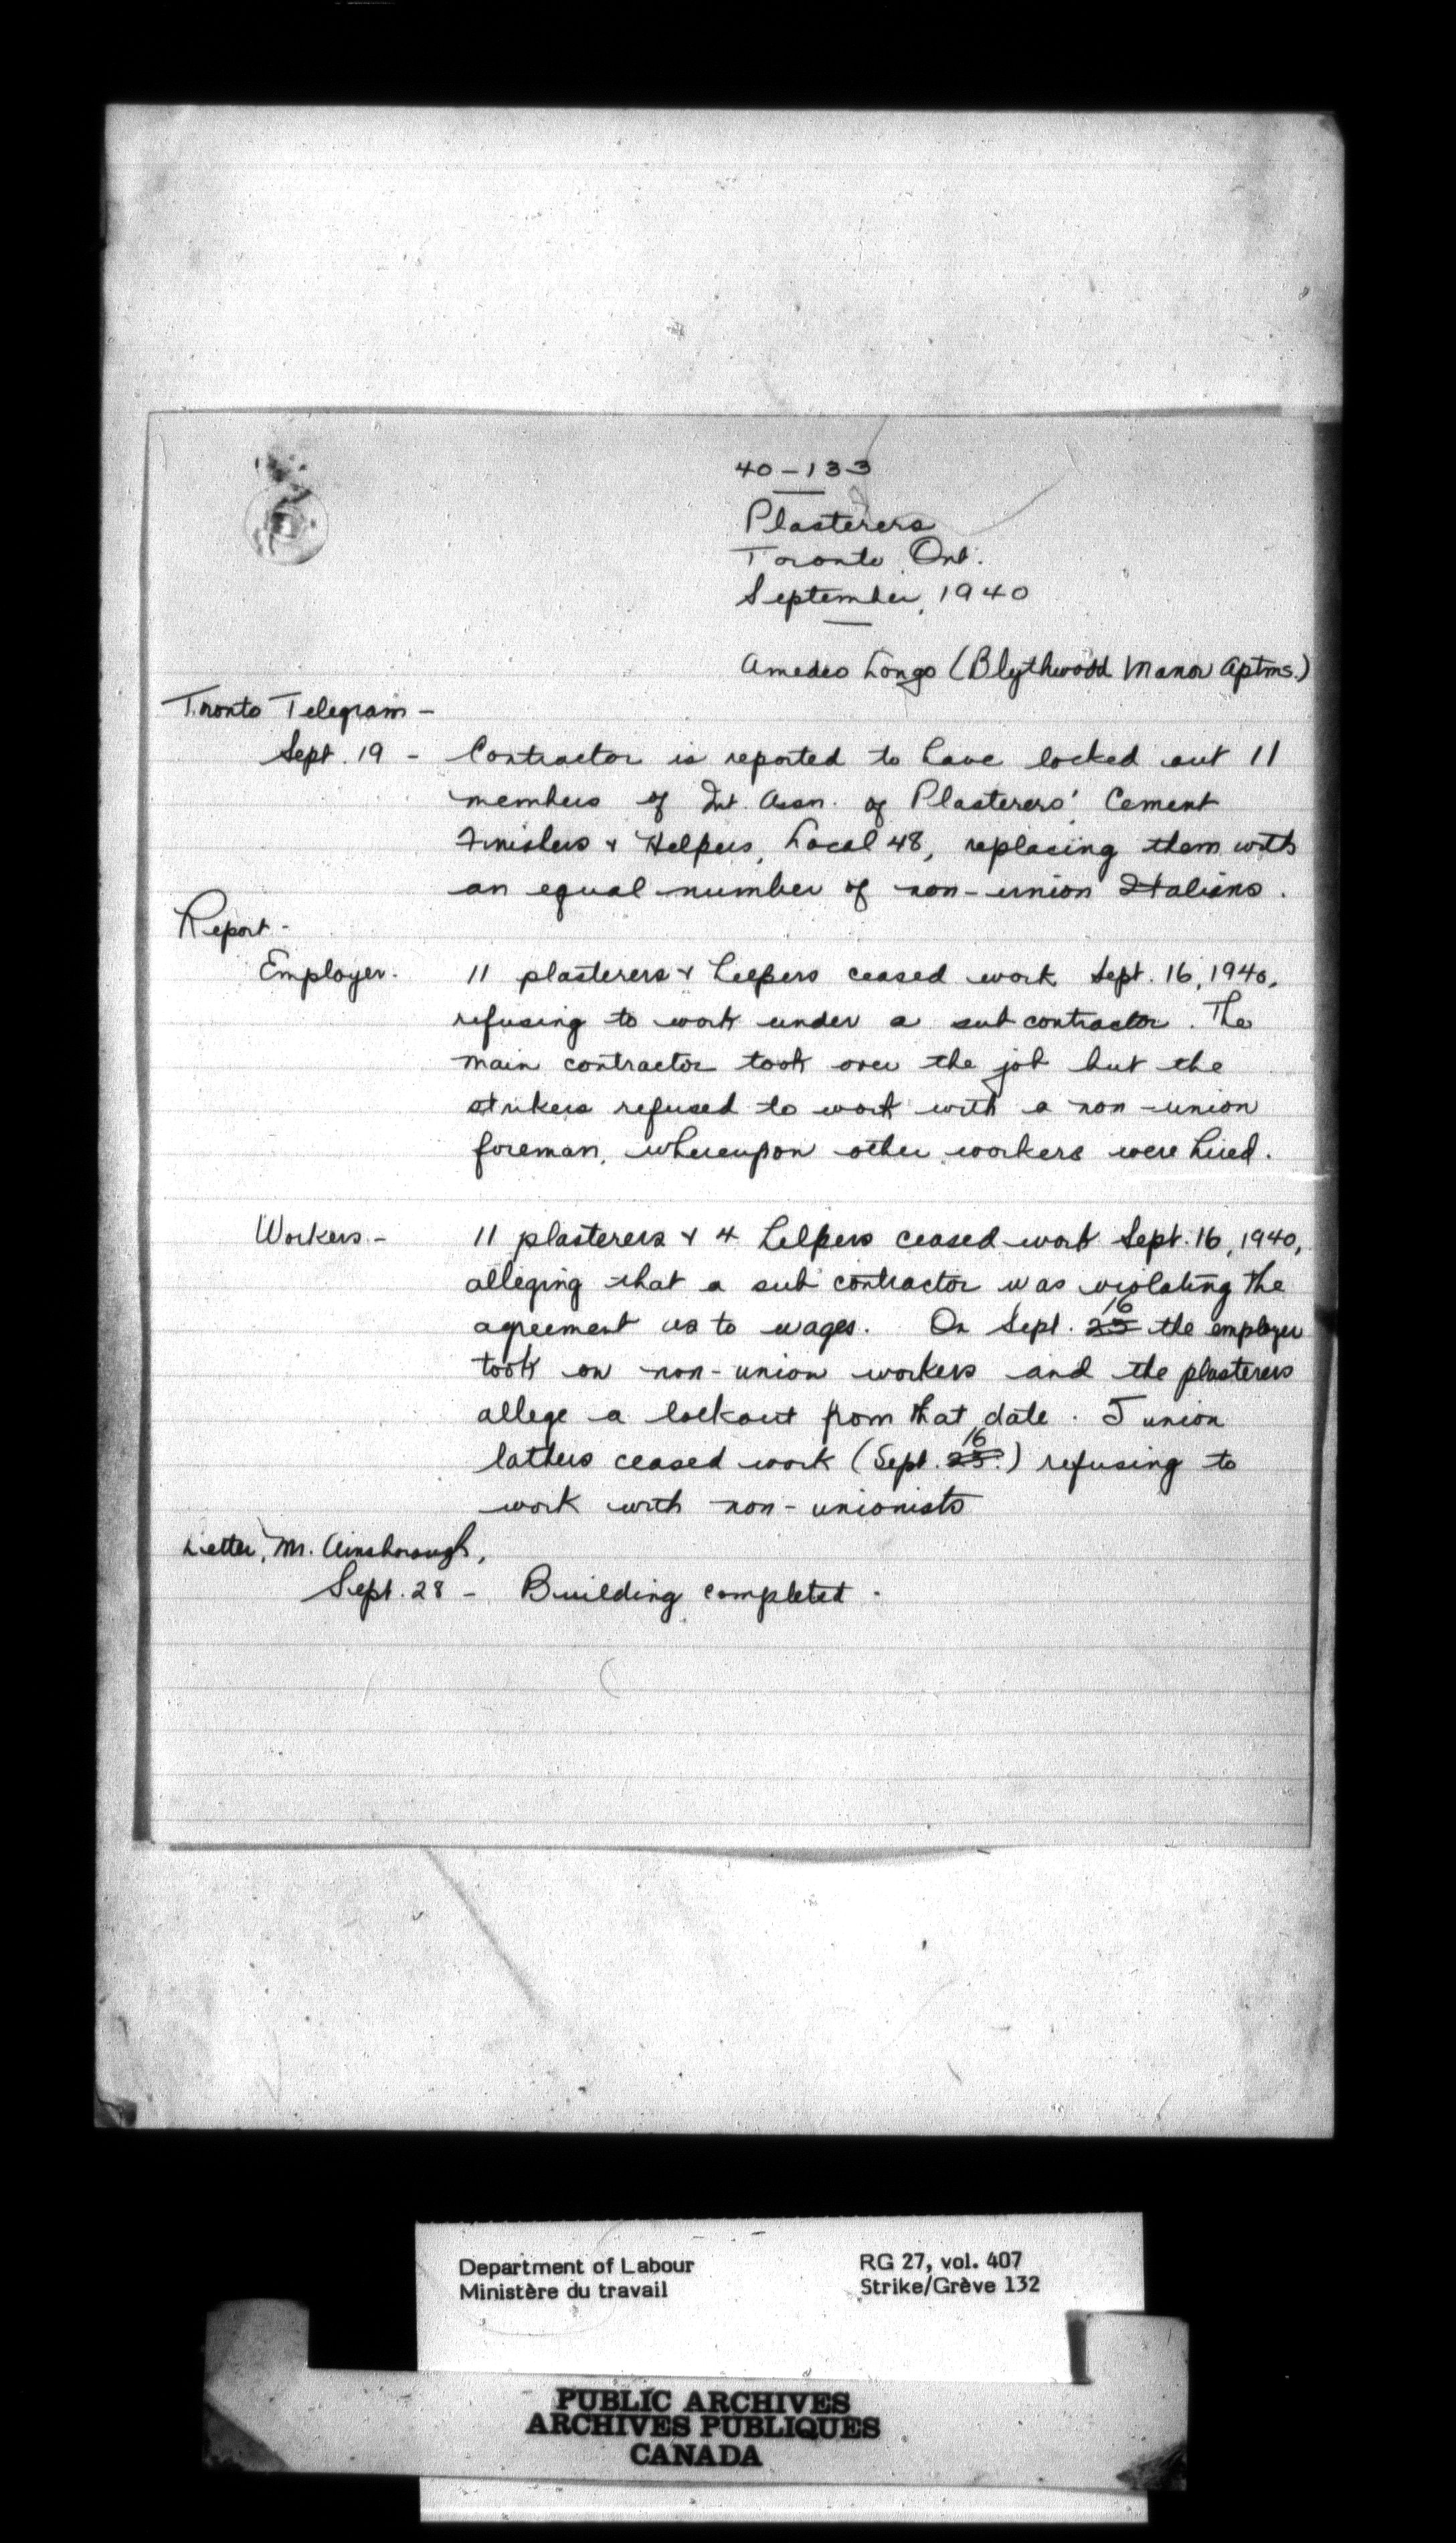 40-133
Plasterers
Toronto, Ont.
September, 1940
Amedeo Longo (Blythwood Manor Aptms.)
Toronto Telegram -
Sept. 19 - Contractor is reported to have locked out 11
members of Int. Assn. of Plasterers', Cement
Finishers & Helpers, Local 48, replacing them with
an equal number of non-union Italians.
Report -
Employer. 11 plasterers & helpers ceased work Sept. 16, 1940,
refusing to work under a sub contractor. The
main contractor took over the job but the
strikers refused to work with a non-union
foreman, whereupon other workers were hired.
Workers - 11 plasterers & 4 helpers ceased work Sept. 16, 1940,
alleging that a sub contractor was violating the
agreement as to wages. On Sept. 25 16 the employer
took on non-union workers and the plasterers
allege a lockout from that date. 5 union
lathers ceased work (Sept. 25. 16) refusing to
work with non-unionists
Letter, Mr. Ainsborough,
Sept. 28 - Building completed.
Department of Labour
Ministère du travail
RG 27, vol. 407
Strike/Grève 132
PUBLIC ARCHIVES
ARCHIVES PUBLIQUES
CANADA